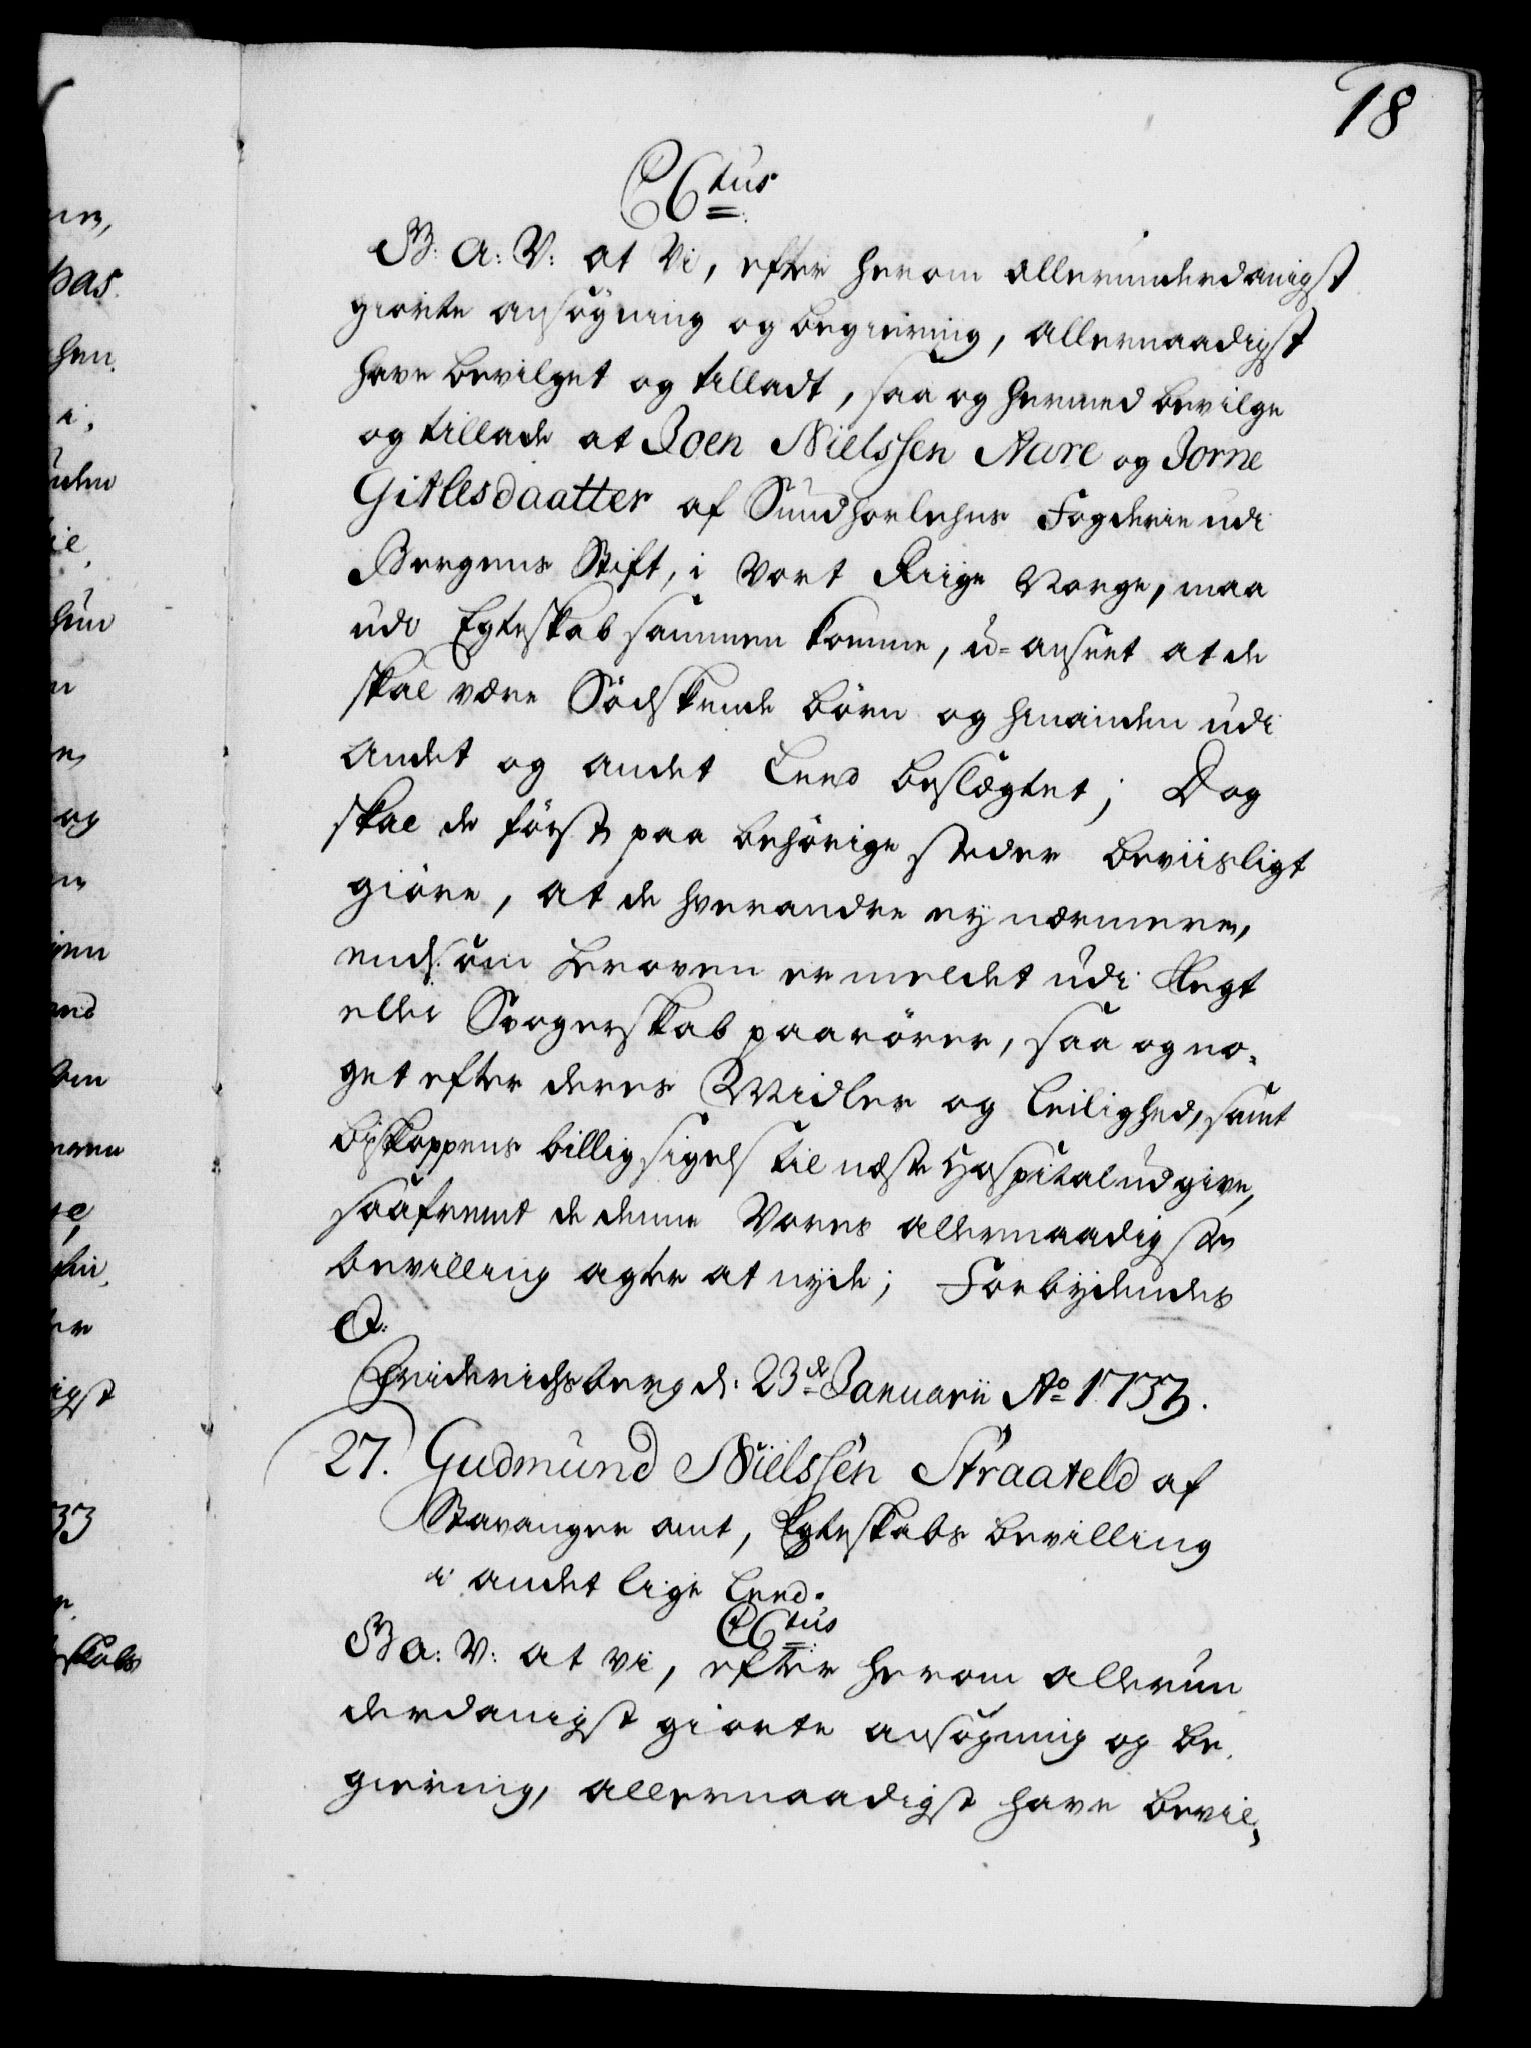 18
CCtus
G: A: V: at Vi, efter herom allerunderdanigst
giorte ansøgning og begiering, allernaadigst
have bevilget og tilladt, saa og hermed bevilge
og tillade at Joen Nielssen Aare og Jorne
Gitlesdaatter af Sundhorlehns Fogderie udi
Bergens Stift, i Vort Riige Norge, maa
udi Egteskab sammen komme, u-anseet at de
skal være Sødskende børn og hinanden udi
andet og andet Leed beslægtet; Dog
skal de først paa behørige steder beviisligt
giøre, at de hverandre ey nærmere,
endsom heroven er meldet udi Slegt
eller Svogerskab paarører, saa og no-
get efter deres Midler og Leilighed, samt
biskoppens billigsigelse til næste Hospital udgive,
saafremt de denne Vores allernaadigste
bevilling agter at nyde; Forbydendes
&:
Friderichsberg d: 23de Januarii Ao 1733.
27. Gudmund Nielssen Straateld af
Stavanger amt, Egteskabs bevilling
i andet lige Leed.
CCtus
G A: V: at vi, efter herom allerun
derdanigst giorte ansøgning og be-
giering, allernaadigst have bevil-